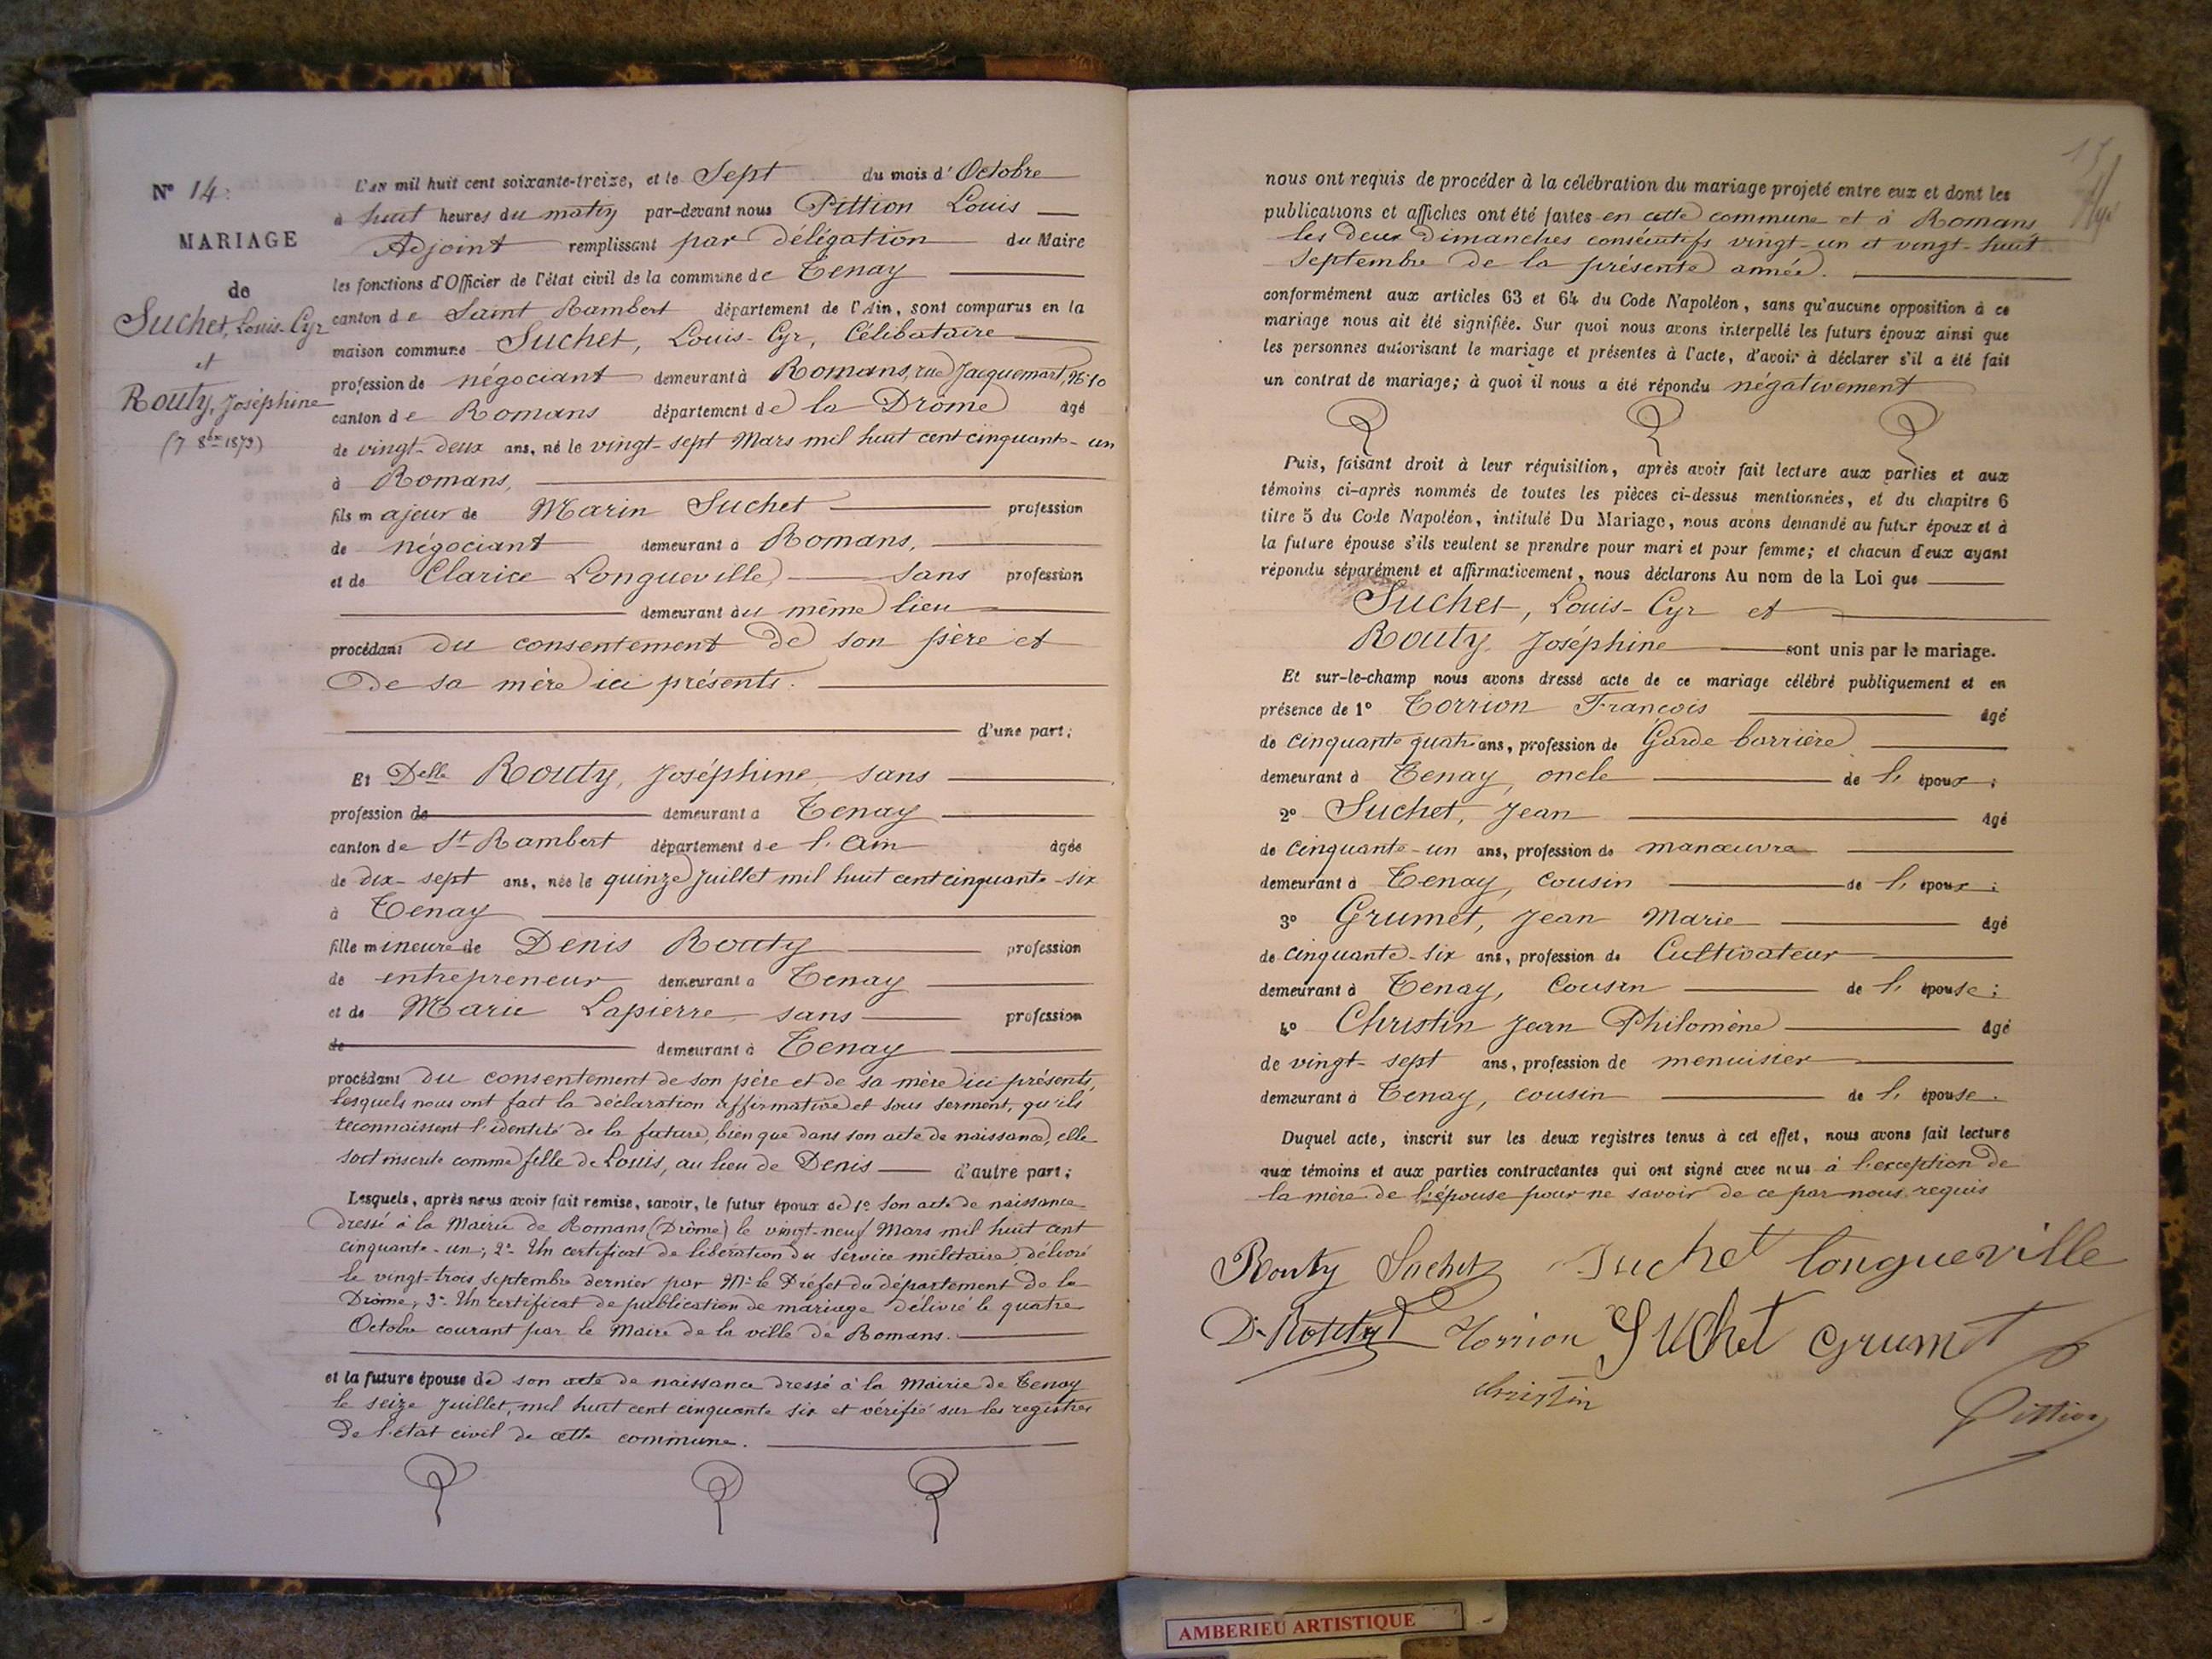 N° 14.
MARIAGE
de
Suchet, Louis-Cyr
et
Routy, Joséphine
(7 8bre 1873)
L'AN mil huit cent soixante-treize, et le Sept du mois d'Octobre
à huit heures du matin par-devant nous Pittion Louis
Adjoint remplissant par délégation du Maire
les fonctions d'Officier de l'état civil de la commune de Tenay
canton de Saint Rambert département de l'Ain, sont comparus en la
maison commune Suchet, Louis-Cyr, Célibataire
profession de négociant demeurant à Romans, rue Jacquemart, N° 10
canton de Romans département de la Drôme âgé
de vingt-deux ans, né le vingt-sept Mars mil huit cent cinquante-un
à Romans,
fils majeur de Marin Suchet profession
de négociant demeurant à Romans,
et de Clarice Longueville sans profession
demeurant au même lieu
procédant du consentement de son père et
de sa mère ici présents.
d'une part;
Et Delle Routy, Joséphine sans
profession de demeurant à Tenay
canton de St Rambert département de l'Ain âgée
de dix-sept ans, née le quinze Juillet mil huit cent cinquante-six
à Tenay
fille mineure de Denis Routy profession
de entrepreneur demeurant à Tenay
et de Marie Lapierre sans profession
de demeurant à Tenay
procédant du consentement de son père et de sa mère ici présents,
lesquels nous ont fait la déclaration affirmative et sous serment, qu'ils
reconnaissent l'identité de la future, bien que dans son acte de naissance, elle
soit inscrite comme fille de Louis, au lieu de Denis d'autre part;
Lesquels, après nous avoir fait remise, savoir, le futur époux de 1° Son acte de naissance
dressé à la Mairie de Romans (Drôme) le vingt-neuf Mars mil huit cent
cinquante-un; 2° Un certificat de libération du service militaire, délivré
le vingt-trois septembre dernier par Mr le Préfet du département de la
Drôme; 3° Un certificat de publication de mariage délivré le quatre
Octobre courant par le Maire de la ville de Romans.
et la future épouse de son acte de naissance dressé à la Mairie de Tenay
le seize Juillet, mil huit cent cinquante six et vérifié sur les registres
de l'état civil de cette commune.
nous ont requis de procéder à la célébration du mariage projeté entre eux et dont les
publications et affiches ont été faites en cette commune et à Romans
les deux dimanches consécutifs vingt-un et vingt-huit
Septembre de la présente année.
conformément aux articles 63 et 64 du Code Napoléon, sans qu'aucune opposition à ce
mariage nous ait été signifiée. Sur quoi nous avons interpellé les futurs époux ainsi que
les personnes autorisant le mariage et présentes à l'acte, d'avoir à déclarer s'il a été fait
un contrat de mariage; à quoi il nous a été répondu négativement
Puis, faisant droit à leur réquisition, après avoir fait lecture aux parties et aux
témoins ci-après nommés de toutes les pièces ci-dessus mentionnées, et du chapitre 6
titre 5 du Code Napoléon, intitulé Du Mariage, nous avons demandé au futur époux et à
la future épouse s'ils veulent se prendre pour mari et pour femme; et chacun d'eux ayant
répondu séparément et affirmativement, nous déclarons Au nom de la Loi que
Suchet, Louis-Cyr et
Routy, Joséphine sont unis par le mariage.
Et sur-le-champ nous avons dressé acte de ce mariage célébré publiquement et en
présence de 1° Torrion François âgé
de Cinquante quatre ans, profession de Garde barrière
demeurant à Tenay, oncle de l'époux;
2° Suchet, Jean âgé
de Cinquante-un ans, profession de manœuvre
demeurant à Tenay, cousin de l'époux;
3° Grumet, Jean Marie âgé
de cinquante-six ans, profession de Cultivateur
demeurant à Tenay, Cousin de l'épouse;
4° Christin Jean Philomène âgé
de vingt-sept ans, profession de menuisier
demeurant à Tenay, cousin de l'épouse.
Duquel acte, inscrit sur les deux registres tenus à cet effet, nous avons fait lecture
aux témoins et aux parties contractantes qui ont signé avec nous à l'exception de
la mère de l'épouse pour ne savoir de ce par nous requis
Routy Suchet Suchet longueville
D. Routy Torrion Suchet Grumet
christin
Pittion
AMBERIEU ARTISTIQUE